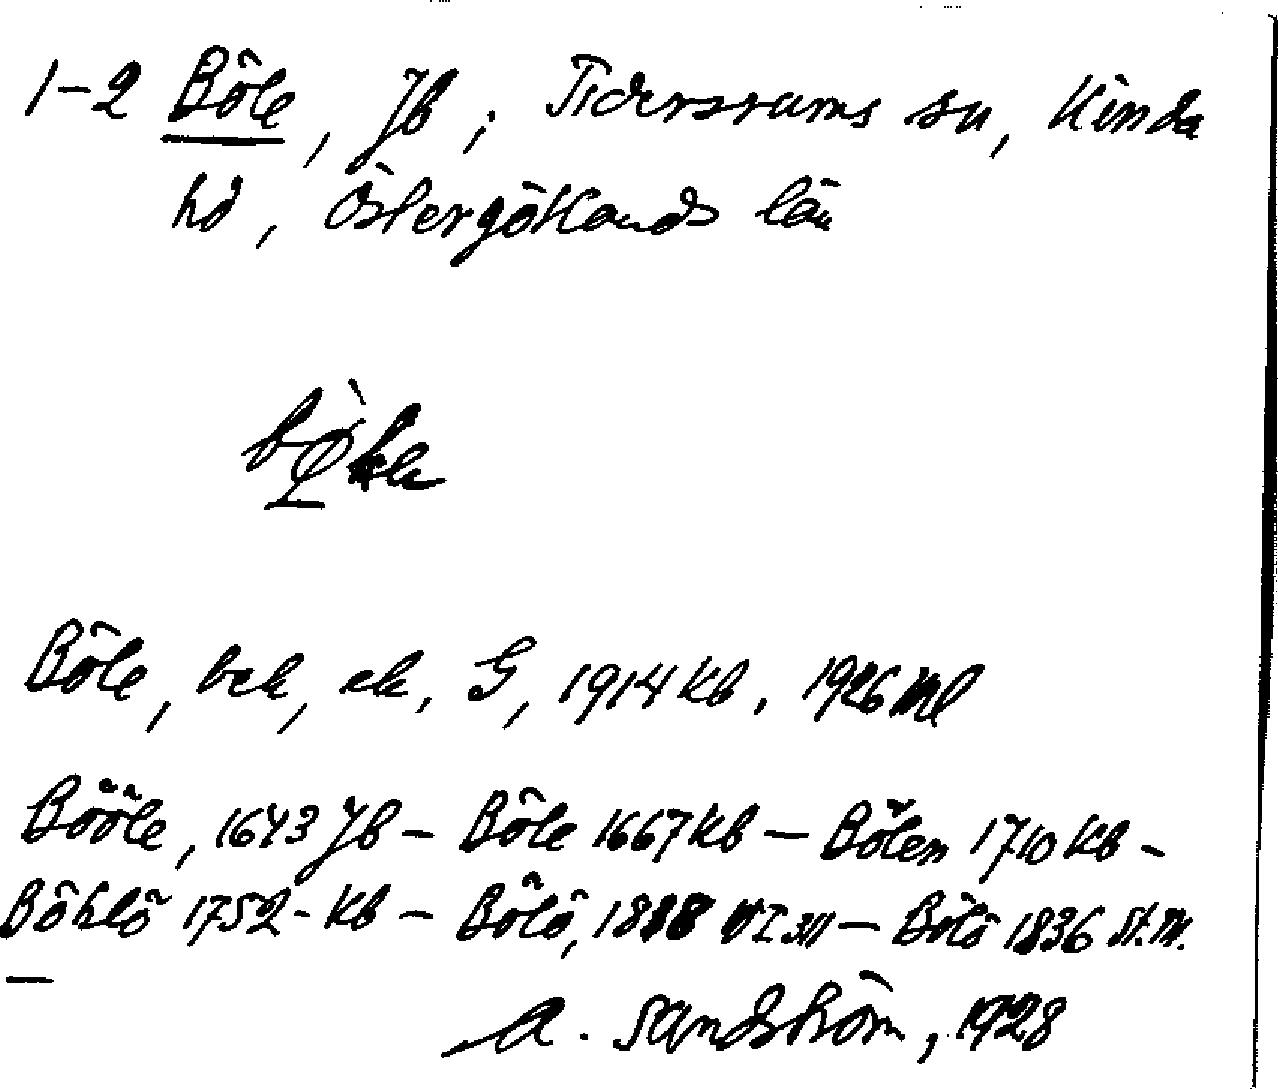 1-2 Böle, Jb; Tidersrums sn, Kinda
hd, Östergötlands län
Böle, bek, ek, G, 1914 Kb, 1926 Ml
Bööle, 1643 Jb - Böle 1667 Kb - Bölen 1710 Kb -
Böhlö 1752 - Kb - Bölö, 1888 - Bölö 1836 St.M.
A. Sandström, 1928